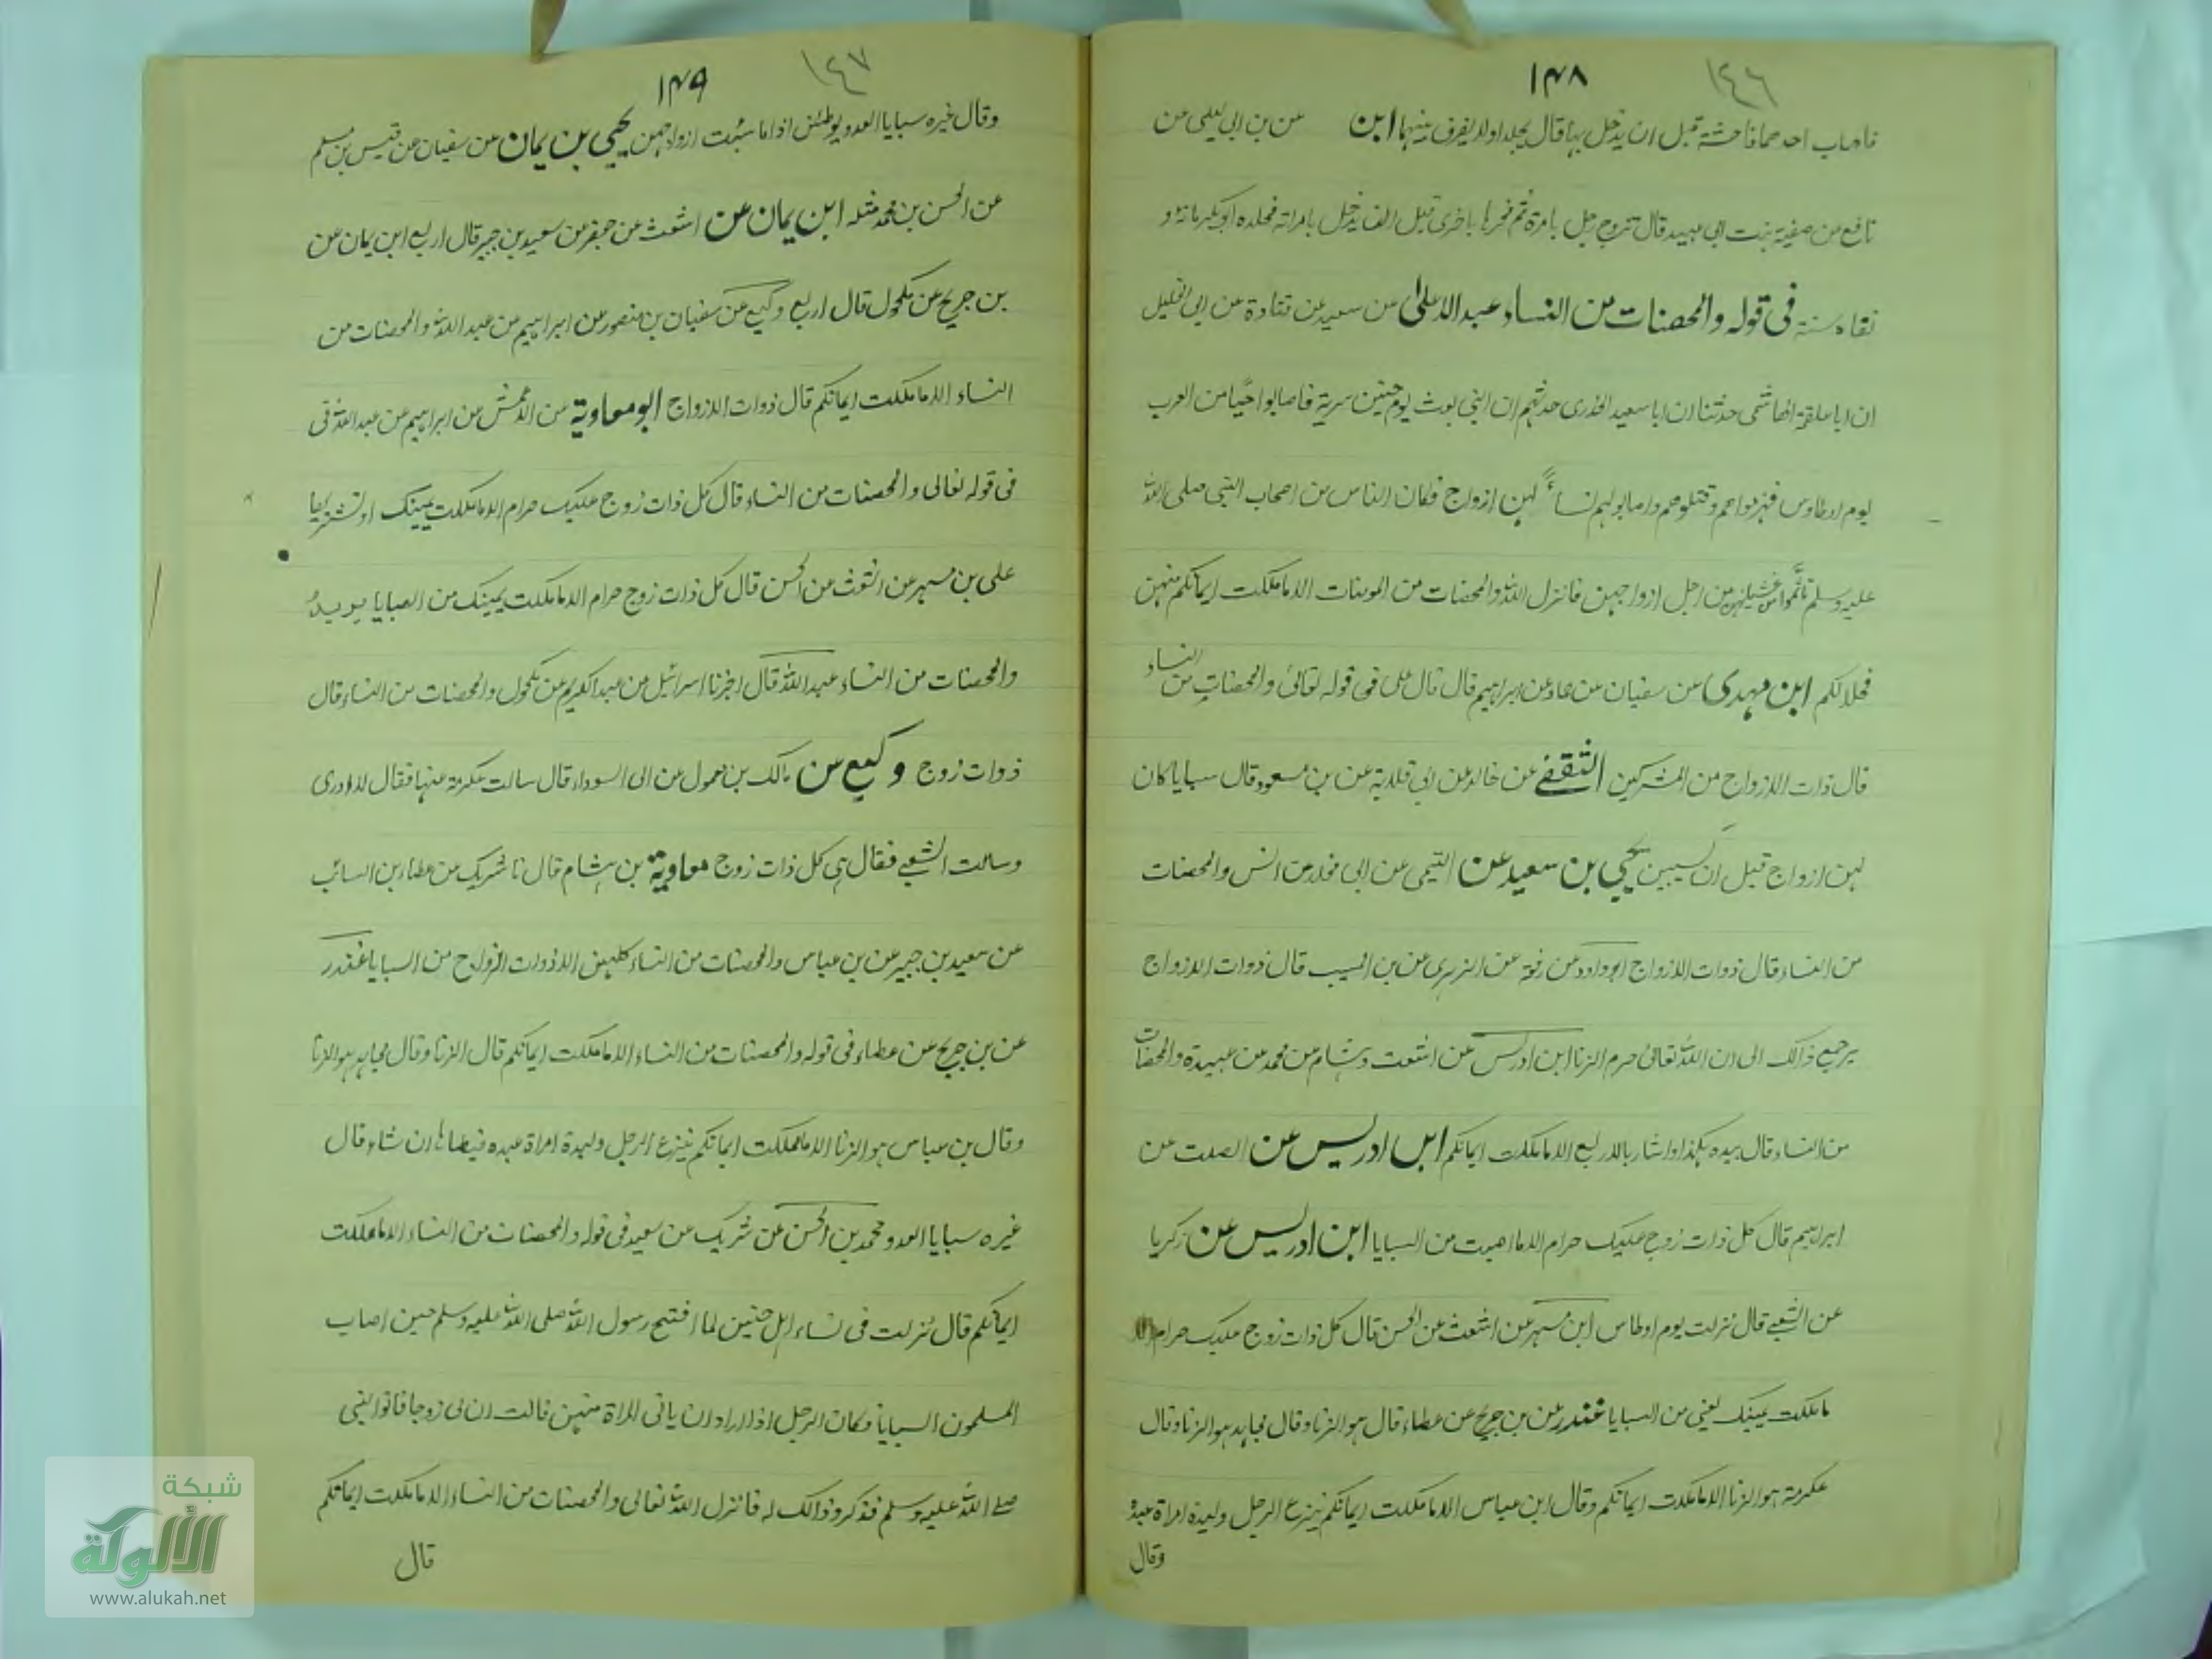 ١٤٦
١٤٨
فاصاب احدهما فاحشة قبل ان يدخل بها قال يجلد اولا يفرق بينهما ابن عن بن ابي ليلى عن
نافع عن صفية بنت ابي عبيد قال تزوج رجل بامرة ثم فجر باخرى قبل ان يدخل بامراته فجلده ابو بكر مائة و
نفاه سنة في قوله والمحصنات من النساء عبد الاعلى عن سعيد عن قتادة عن ابي الخليل
ان ابا علقمة الهاشمي حدثنا ان ابا سعيد الخدري حدثهم ان النبي بعث يوم حنين سرية فاصابوا حيًا من العرب
يوم اوطاوس فهزموهم وقتلوهم واصابو لهم نساءً لهن ازواج فكان الناس من اصحاب النبي صلى الله
عليه وسلم تأثموا من غشيانهن من اجل ازواجهن فانزل الله والمحصنات من المومنات الا ما ملكت ايمانكم منهن
فحلا لكم ابن مهدي عن سفيان عن حماد عن ابراهيم قال قال على في قوله تعالى والمحصنات من النساء
قال ذات الازواج من المشركين الثقفي عن خالد عن ابي قلابة عن بن مسعود قال سبايا كان
لهن ازواج قبل ان يسبين يحيى بن سعيد عن التيمى عن ابي مخلد عن انس والمحصنات
من النساء قال ذوات الازواج ابو داود عن زمة عن الزهري عن بن المسيب قال ذوات الازواج
يرجع ذالك الى ان الله تعالى حرم الزنا ابن ادريس عن اشعت وهشام عن محمد عن عبيدة والمحصنات
من النساء قال بيده هكذا واشار بالاربع الا ما ملكت ايمانكم ابن ادريس عن الصلت عن
ابراهيم قال كل ذات زوج عليك حرام الا ما اصبت من السبايا ابن ادريس عن زكريا
عن الشعبي قال نزلت يوم اوطاس ابن مسهر عن اشعث عن الحسن قال كل ذات زوج عليك حرام الا
ما ملكت يمينك يعني من السبايا غندر عن بن جريج عن عطاء قال هو الزنا وقال مجاهد هو الزنا وقال
عكرمة هو الزنا الا ما ملكت ايمانكم وقال ابن عباس الا ما ملكت ايمانكم ينزع الرجل وليدة امراة عبده
وقال
١٤٧
١٤٩
وقال غيره سبايا العدو يوطئن اذا ما سبئت ازواجهن يحيى بن يمان عن سفيان عن قيس بن مسلم
عن الحسن بن محمد مثله ابن يمان عن اشعث عن جعفر عن سعيد بن جبير قال اربع ابن يمان عن
بن جريج عن مكحول قال اربع وكيع عن سفيان بن منصور عن ابراهيم عن عبد الله والمحصنات من
النساء الا ما ملكت ايمانكم قال ذوات الازواج ابو معاوية عن الاعمش عن ابراهيم عن عبد الله في
في قوله تعالى والمحصنات من النساء قال كل ذات زوج عليك حرام الا ما ملكت يمينك او تشتريها
على بن مسهر عن اشعث عن الحسن قال كل ذات زوج حرام الا ما ملكت يمينك من السبايا
والمحصنات من النساء عبد الله قال اخبرنا اسرائيل عن عبد الكريم عن مكحول والمحصنات من النساء قال
ذوات زوج وكيع عن مالك بن مغول عن ابى السوداء قال سالت عكرمة عنها فقال لا ادرى
وسالت الشعبي فقال هي كل ذات زوج معاوية بن هشام قال نا شريك عن عطاء بن السائب
عن سعيد بن جبير عن بن عباس والمحصنات من النساء كلهن الا ذوات الازواج من السبايا غندر
عن بن جريج عن عطاء في قوله والمحصنات من النساء الا ما ملكت ايمانكم قال الزنا وقال مجاهد هو الزنا
وقال بن عباس هو الزنا الا ما ملكت ايمانكم ينزع الرجل وليدة امراة عبده فيطاها ان شاء قال
غيره سبايا العدو محمد بن الحسن عن شريك عن سعيد في قوله والمحصنات من النساء الا ما ملكت
ايمانكم قال نزلت في نساء اهل حنين لما افتتح رسول الله صلى الله عليه وسلم حين اصاب
المسلمون السبايا فكان الرجل اذا اراد ان ياتى المراة منهن قالت ان لى زوجا فاتوا النبى
صلى الله عليه وسلم فذكروا ذالك له فانزل الله تعالى والمحصنات من النساء الا ما ملكت ايمانكم
قال
شبكة
الألوكة
www.alukah.net